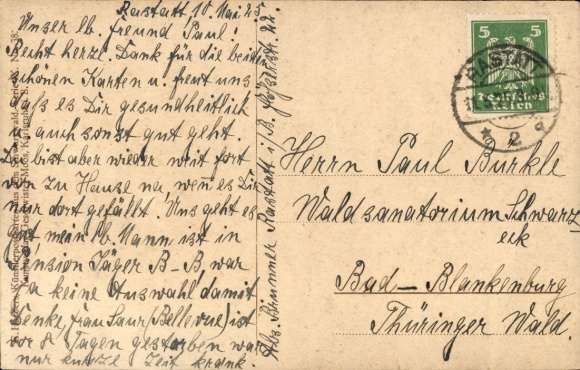 Rastatt, 10. Mai 25
Unser lb. Freund Paul!
Recht herzl. Dank für die beiden
schönen Karten u. freut uns
daß es Dir gesundheitlich
u auch sonst gut geht.
Du bist aber wieder weit fort
von zu Hause na wenn es Dir
nur dort gefällt. Uns geht es
gut mein lb. Mann ist in
Pension Jäger B-B, war
ja keine Auswahl damit
Denke, Frau Saur (Bellevue) ist
vor 8 Tagen gestorben war
nur kurze Zeit krank.
Abs. Brunner Rastatt i/B.
5 5
Deutsches
Reich
RASTATT
* 2 a
Herrn Paul Burkle
Waldsanatorium Schwarz
eck
Bad-Blankenburg
Thüringer Wald.